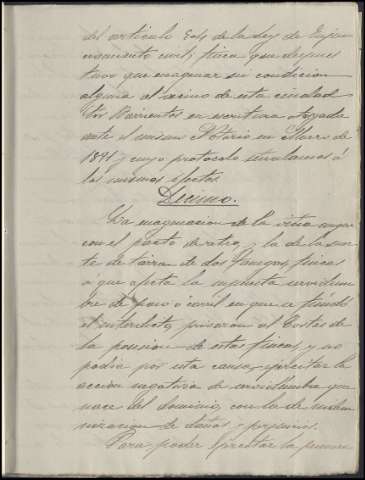 del articulo 604 de la Ley de Enjui
ciamiento civil, finca que despues
tuvo que enagenar sin condicion
alguna al vecino de esta ciudad
Barrientos en escritura otorgada
ante el mismo Notario en Marzo de
1891 y cuyo protocolo señalamos á
los mismos efectos.
Decimo.
La enagenacion de la viña
con el pacto de retro, y la de la suer
te de tierra de dos fanegas, fincas
á que afecta la supuesta servidum
bre de paso ó carril en que se funda
el interdicto, privaron al Cortés de
la posesion de estas fincas, y no
podia por esta causa ejercitar la
accion negativa de servidumbre que
nace del dominio, con la de indem
nizacion de daños y perjuicios.
Para poder ejercitar la